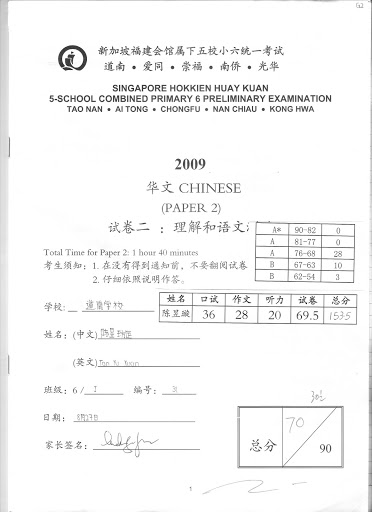 新加坡福建会馆属下五校小六统一考试
道南 • 爱同 • 崇福 • 南侨 • 光华
SINGAPORE HOKKIEN HUAY KUAN
5-SCHOOL COMBINED PRIMARY 6 PRELIMINARY EXAMINATION
TAO NAN • AI TONG • CHONGFU • NAN CHIAU • KONG HWA
2009
华文 CHINESE
(PAPER 2)
试卷二 : 理解和语文
A* 90-82 0
A 81-77 0
A 76-68 28
B 67-63 10
B 62-54 3
Total Time for Paper 2: 1 hour 40 minutes
考生须知: 1. 在没有得到通知前，不要翻阅试卷
2. 仔细依照说明作答。
姓名 口试 作文 听力 试卷 总分
陈昱璇 36 28 20 69.5 153.5
学校: 道南学校
姓名: (中文)
(英文)
班级: 6 / J 编号: 31
日期: 8月27日
家长签名:
总分 70 90
1